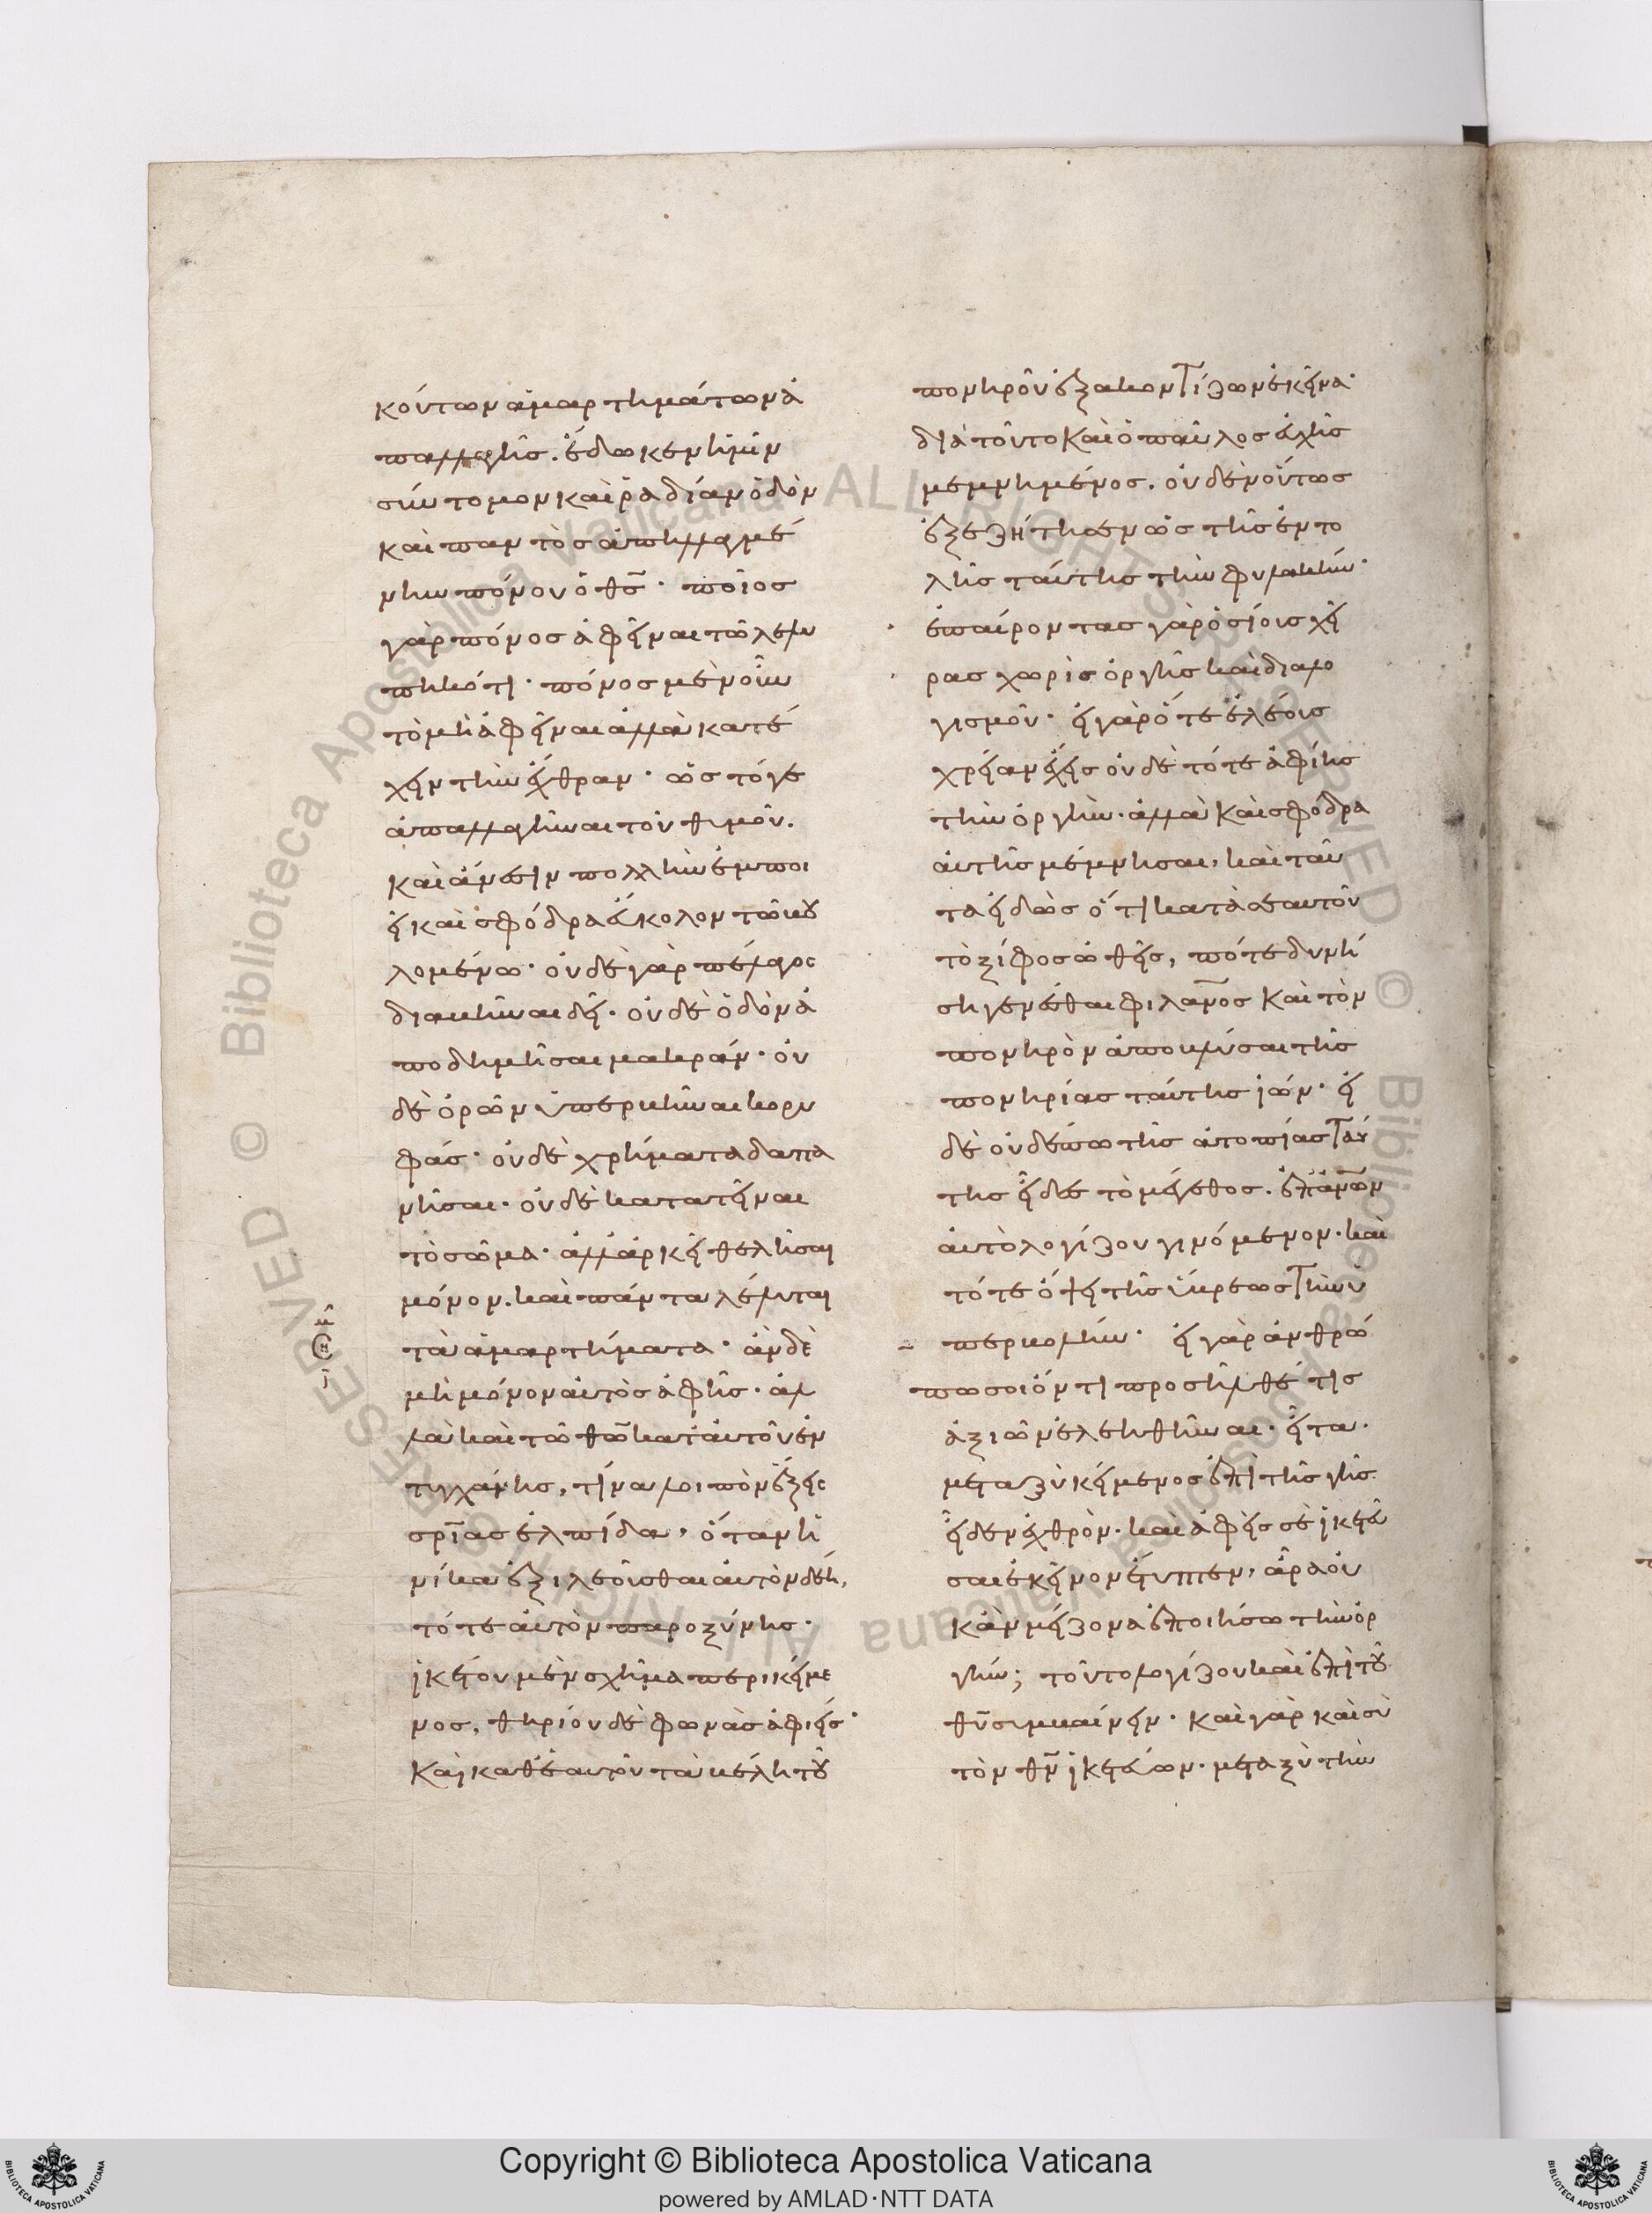 κόντων ἁμαρτημάτων ἀ
παλλαγῆς. ἔδωκεν ἡμῖν
σύντομον καὶ ῥαδίαν ὁδὸν
καὶ παντὸς ἀπηλλαγμέ
νην πόνου ὁ θς· ποῖος
γὰρ πόνος ἀφεῖναι τῶ λελυ
πηκότι· πόνος μὲν οὖν
τὸ μὴ ἀφεῖναι ἀλλὰ κατέ
χειν τὴν ἔχθραν· ὡς τό γε
ἀπαλλαγῆναι τοῦ θυμοῦ.
καὶ ἄνεσιν πολλὴν ἐμποι
εῖ καὶ σφόδρα εὔκολον τῶ βου
λομένω· οὐδὲ γὰρ πέλαγος
διαβῆναι δεῖ· οὐδὲ ὁδὸν ἀ
ποδημῆσαι μακράν· οὐ
δὲ ὀρῶν ὑπερβῆναι κορυ
φάς· οὐδὲ χρήματα δαπα
νῆσαι· οὐδὲ κατατεῖναι
τὸ σῶμα· ἀλλ' ἀρκεῖ θελῆσαι
μόνον. καὶ πάντα λέλυται
τὰ ἁμαρτήματα· ἂν δὲ
μὴ μόνον αὐτὸς ἀφῆς· ἀλ
λὰ καὶ τῶ θω κατ' αὐτοῦ ἐν
τυγχάνης, τίνα λοιπὸν ἕξεις
σρίας ἐλπίδα, ὅταν ἡ
νίκα ἐξιλεοῦσθαι αὐτὸν δέη,
τότε αὐτὸν παροξύνης·
ἱκέτου μὲν σχῆμα περικείμε
νος, θηρίου δὲ φωνὰς ἀφιείς·
καὶ καθ' ἑαυτοῦ τὰ βέλη τοῦ
πονηροῦ ἐξακοντίζων ἐκεῖνα·
διὰ τοῦτο καὶ ὁ παῦλος εὐχῆς
μεμνημένος. οὐδὲν οὕτως
ἐξεζήτησεν ὡς τῆς ἐντο
λῆς ταύτης τὴν φυλακήν·
ἐπαίροντας γὰρ ὁσίους χεῖ
ρας χωρὶς ὀργῆς καὶ διαλο
γισμοῦ· εἰ γὰρ ὅτε ἐλέους
χρείαν ἔχεις οὐδὲ τότε ἀφίης
τὴν ὀργὴν· ἀλλὰ καὶ σφόδρα
αὐτῆς μέμνησαι, καὶ ταῦ
τα εἰδὼς ὅτι κατὰ σαυτοῦ
τὸ ξίφος ὠθεῖς, πότε δυνή
ση γενέσθαι φιλανος καὶ τὸν
πονηρὸν ἀποκλύσαι τῆς
πονηρίας ταύτης ἰόν· εἰ
δὲ οὐδέπω τῆς ἀτοπίας ταύ
της εἶδες τὸ μέγεθος. ἐπ' ἀνων
αὐτὸ λογίζου γινόμενον· καὶ
τότε ὄψει τῆς ὕβρεως τὴν ὑ
περβολήν· εἰ γὰρ ἀνθρώ
πω σοι ὄντι προσῆλθέ τις
ἀξιῶν ἐλεηθῆναι· εἶτα·
μεταξὺ κείμενος ἐπὶ τῆς γῆς
εἶδεν ἐχθρὸν· καὶ ἀφεὶς σὲ ἱκετεῦ
σαι ἐκεῖνον ἔτυπτεν, ἆρα οὐ
κἂν μείζονα ἐποιήσω τὴν ὀρ
γήν; τοῦτο λογίζου καὶ ἐπὶ τοῦ
θυ συμβαίνειν· καὶ γὰρ καὶ σὺ
τὸν θν ἱκετεύων· μεταξὺ τὴν